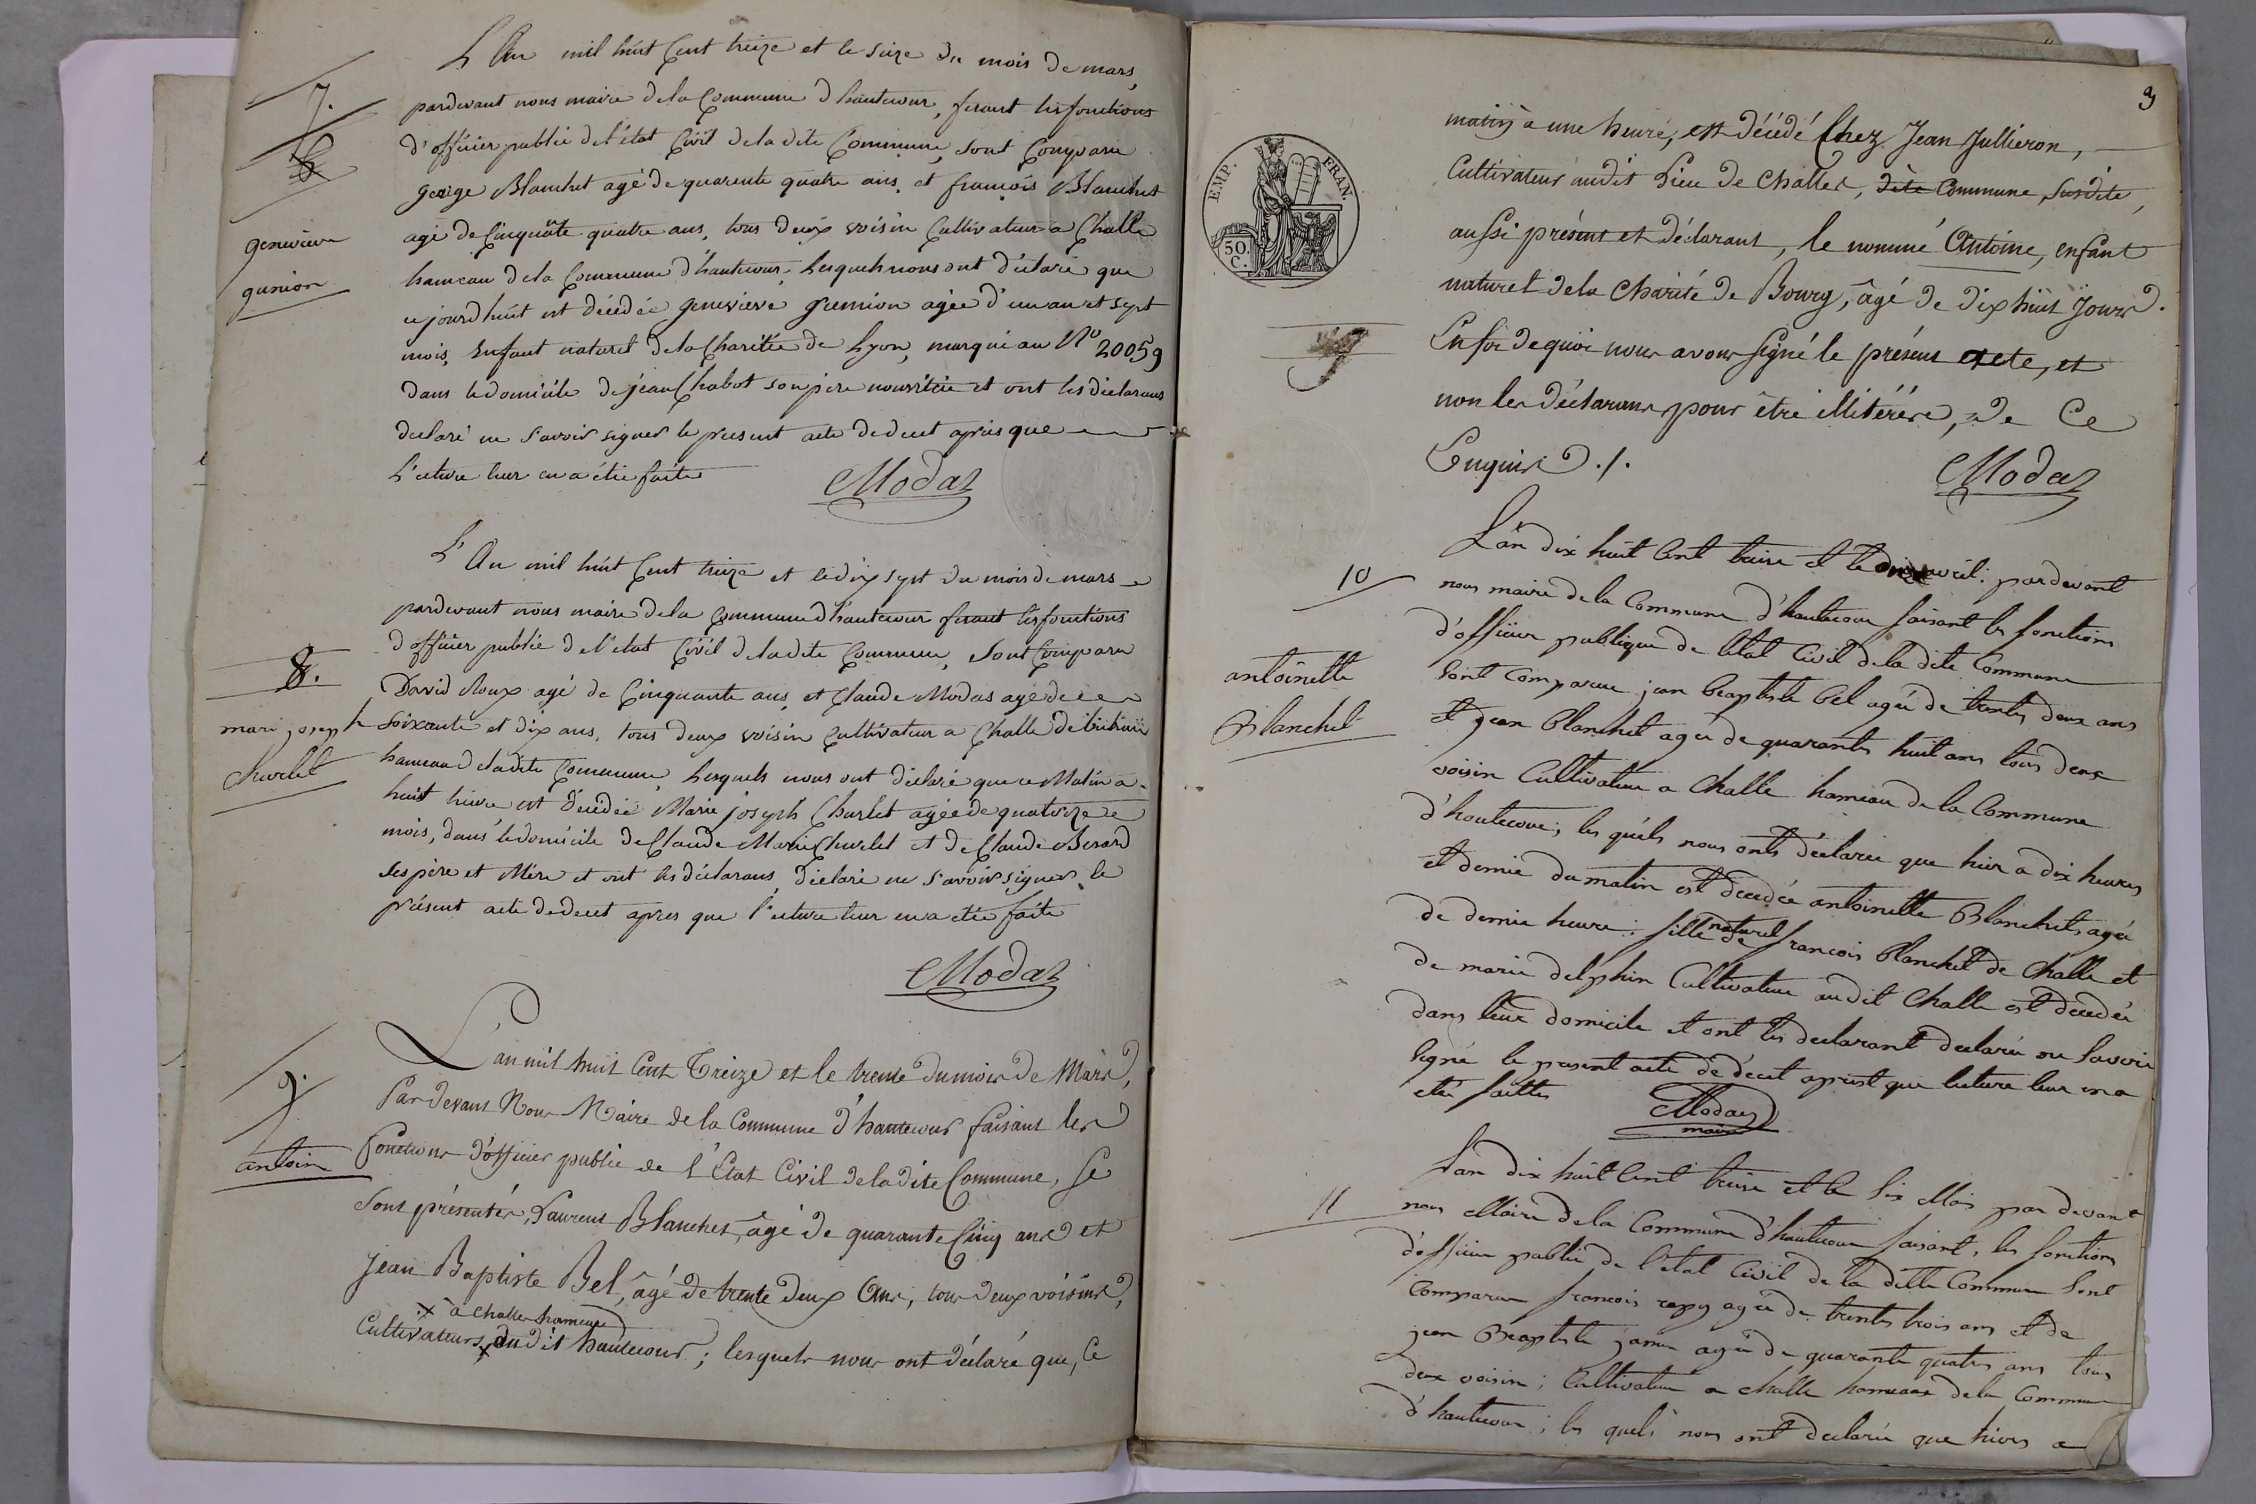 7.
6
genevieve
gunion
L'An mil huit Cent treize et le seize du mois de mars,
pardevant nous maire de la Commune d'hautecour, fesant les fonctions
d'officier public de l'état Civil de la dite Commune, sont Comparu
george Blanchet agé de quarente quatre ans, et françois Blanchet
agé de Cinquante quatre ans, tous deux voisin Cultivateur a Challe
hameau de la Commune d'hautecour, Lesquels nous ont déclaré que
cejourdhuit est décedée genevieve gunion agée d'un an et sept
mois, Enfant naturel de la Charitée de Lyon, marqué au N° 20059
dans le domicile de jean Chabot son père nourricie et ont les déclarans
declaré ne savoir signer le present acte de decet après que
L'ecture leur en a étée faite
Modas
8.
mari joseph
Charlet
L'An mil huit Cent treize et le dix sept du mois de mars
pardevant nous maire de la Commune d'hautecour fesant les fonctions
d'officier public de l'état Civil de la dite Commune, sont Comparu
David Roux agé de Cinquante ans, et Claude Modas agé de
soixante et dix ans, tous deux voisin Cultivateur a Challe
hameau de la dite Commune, Lesquels nous ont déclaré que ce Matin a
huit heure est décédée Marie joseph Charlet agée de quatorze
mois, dans le domicile de Claude Marie Charlet et de Claude Berard
ses père et Mère et ont les déclarans, déclaré ne savoir signer le
présent acte de decet apres que l'ecture leur en a etée faite
Modas
9.
antoin
L'an mil huit Cent Treize et le trente du mois de Mars,
Par devant Nous Maire de la Commune d'hautecour faisant les
fonctions d'officier public de l'État Civil de la dite Commune, se
sont présentés, Laurent Blanchet, âgé de quarante Cinq ans et
Jean Baptiste Bel, âgé de trente deux Ans, tous deux voisins,
x à Challes hameau
Cultivateurs x dudit hautecour; lesquels nous ont déclaré que, Ce
3
EMP. FRAN.
50 C.
matin à une heure, est décédé Chez Jean Jullieron,
Cultivateur audit Lieu de Challes, dite Commune susdite,
aussi présent et déclarant, le nommé Antoine, enfant
naturel de la Charité de Bourg, âgé de dix huit Jours.
En foi de quoi nous avons signé le présent acte, et
non les déclarans pour être illitérés, de Ce
Enquis ./.
Modas
10
antoinette
Blanchet
L'an dix huit Cent treise et le avril: pardevant
nous maire de la Commune d'hautecour faisant les fonctions
d'officier publique de l'état Civil de la dite Commune
sont Comparue jean Baptiste Bel agée de trente deux ans
et jean Blanchet agée de quarante huit ans tous deux
voisin Cultivateur a Challe hameau de la Commune
d'hautecour; les quéls nous onts déclarée que hier a dix heures
et demie du matin est décedée antoinette Blanchet, agée
de demie heure: fille naturel de francois Blanchet de Challe et
de marie delphin Cultivateur au dit Challe est décédée
dans leur domicile et ont les declarant declarée ne savoir
signé le present acte de décet aprest que lecture leur en a
etée faitte
Modas
maire
11
L'an dix huit Cent treise et le six Mai par devant
nous Maire de la Commune d'hautecour faisant, les fonctions
d'officier publie de l'état Civil de la ditte Commune Sont
Comparue francois agée de trente trois ans et de
jean Baptiste agée de quarante quatre ans tous
deux voisin; Cultivateur a Challe hameaux de la Commune
d'hautecour; les quels nous ont declarée que hiers a